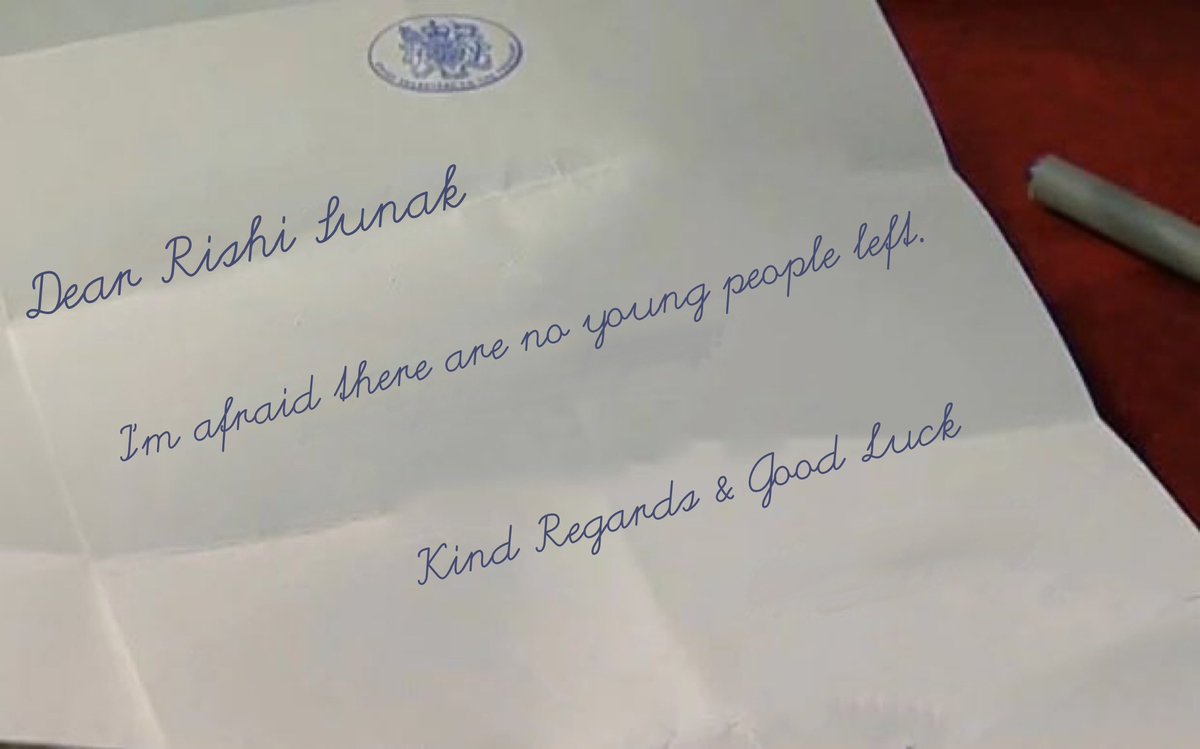 Dear Rishi Sunak
I'm afraid there are no young people left.
Kind Regards & Good Luck